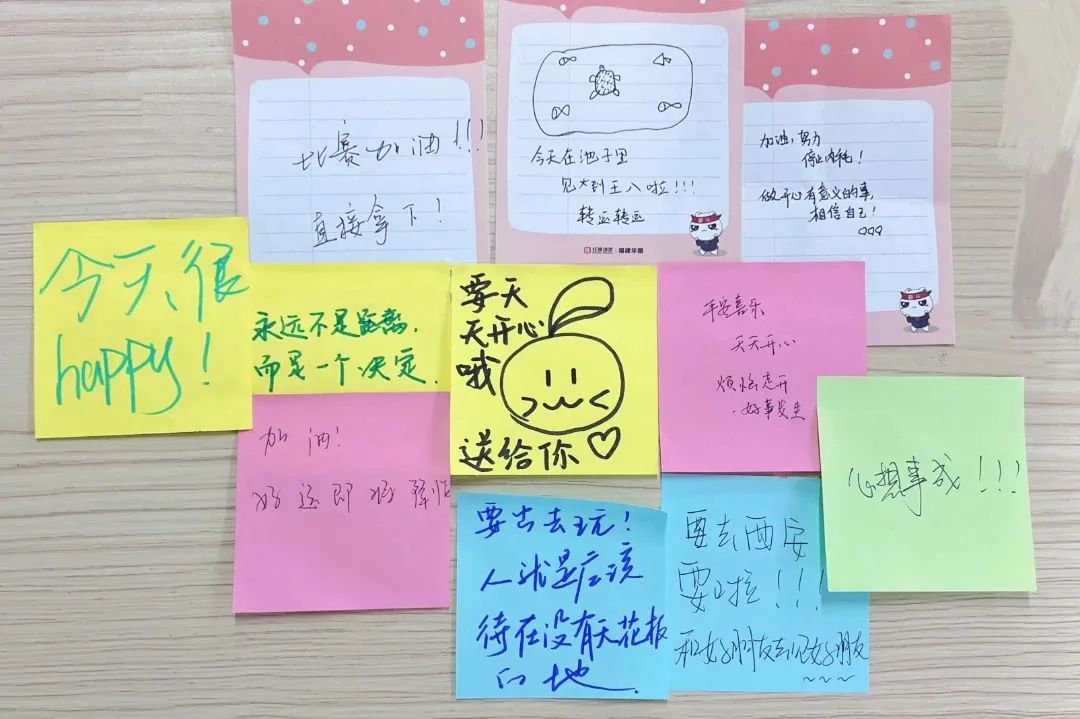 比赛加油!!!
直接拿下!
今天在池子里
见大到王八啦!!!
转运转运
加油,努力
停止内耗!
做开心有意义的事,
相信自己!
今天很
happy!
永远不是距离,
而是一个决定.
要天
天开心
哦
送给你
平安喜乐
天天开心
烦恼走开
好事发生
加油!
好运即将降临
要出去玩!
人就是应该
待在没有天花板
的地.
要去西安
耍啦!!!
和好朋友去见好朋友
~~~
心想事成!!!